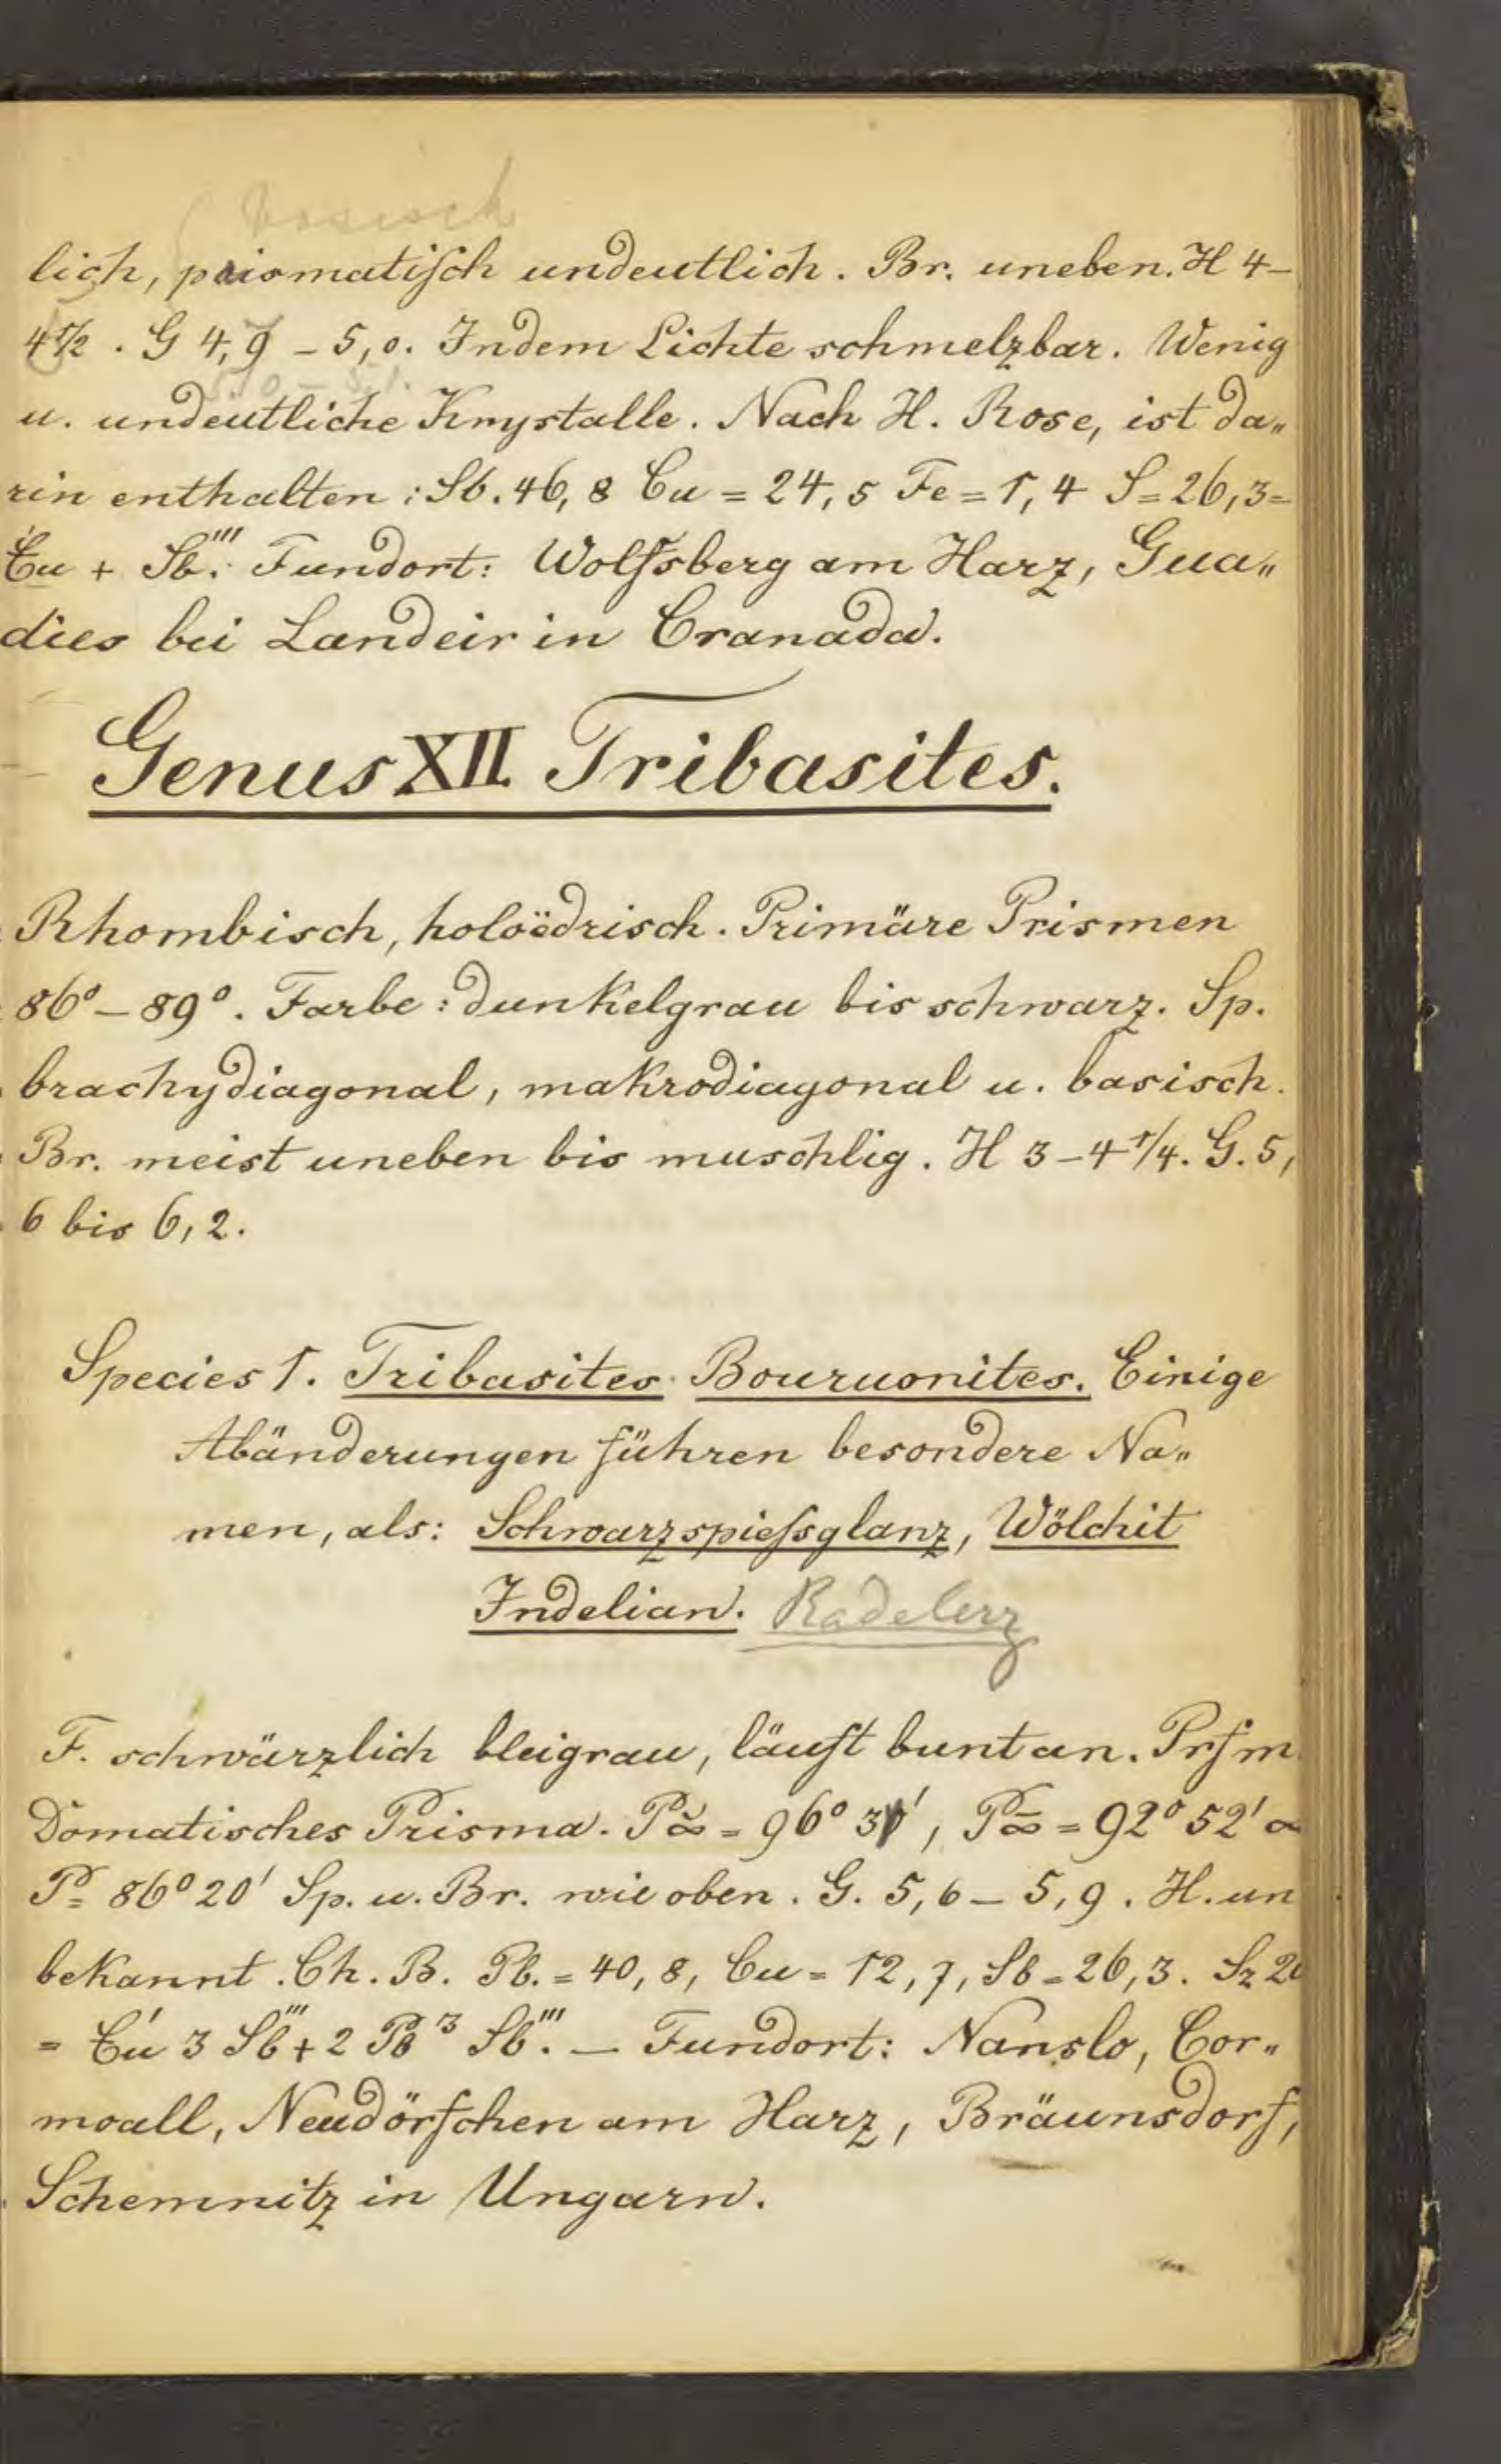 basisch
lich, prismatisch undeutlich. Br. uneben. H 4–
4 1/2. G 4,9 – 5,0. In dem Lichte schmelzbar. Wenig
5,0 –
u. undeutliche Krystalle. Nach H. Rose, ist da„
rin enthalten: Sb. 46,8 Cu = 24,5 Fe = 1,4 S = 26,3 =
Cu + Sb'''. Fundort: Wolfsberg am Harz, Gua„
dies bei Landeir in Cranada.
Genus XII Tribasites.
Rhombisch, holoëdrisch. Primäre Prismen
86° – 89°. Farbe: dunkelgrau bis schwarz. Sp.
brachydiagonal, makrodiagonal u. basisch.
Br. meist uneben bis muschlig. H 3 – 4 1/4. G. 5,
6 bis 6,2.
Species 1. Tribasites Bouruonites. Einige
Abänderungen führen besondere Na„
men, als: Schwarzspiessglanz, Wölchit
Indelian. Radelerz
F. schwärzlich bleigrau, läuft bunt an. Prsm
Domatisches Prisma. P̆∞ = 96° 31', P̄∞ = 92° 52' ∞
P = 86° 20' Sp. u. Br. wie oben. G. 5,6 – 5,9. H. un
bekannt. Ch. B. Pb. = 40,8, Cu = 12,7, Sb = 26,3. Sz 20
= Cu' 3 Sb''' + 2 Pb³ Sb'''. – Fundort: Nanslo, Cor„
moall, Neudörfchen am Harz, Bräunsdorf,
Schemnitz in Ungarn.